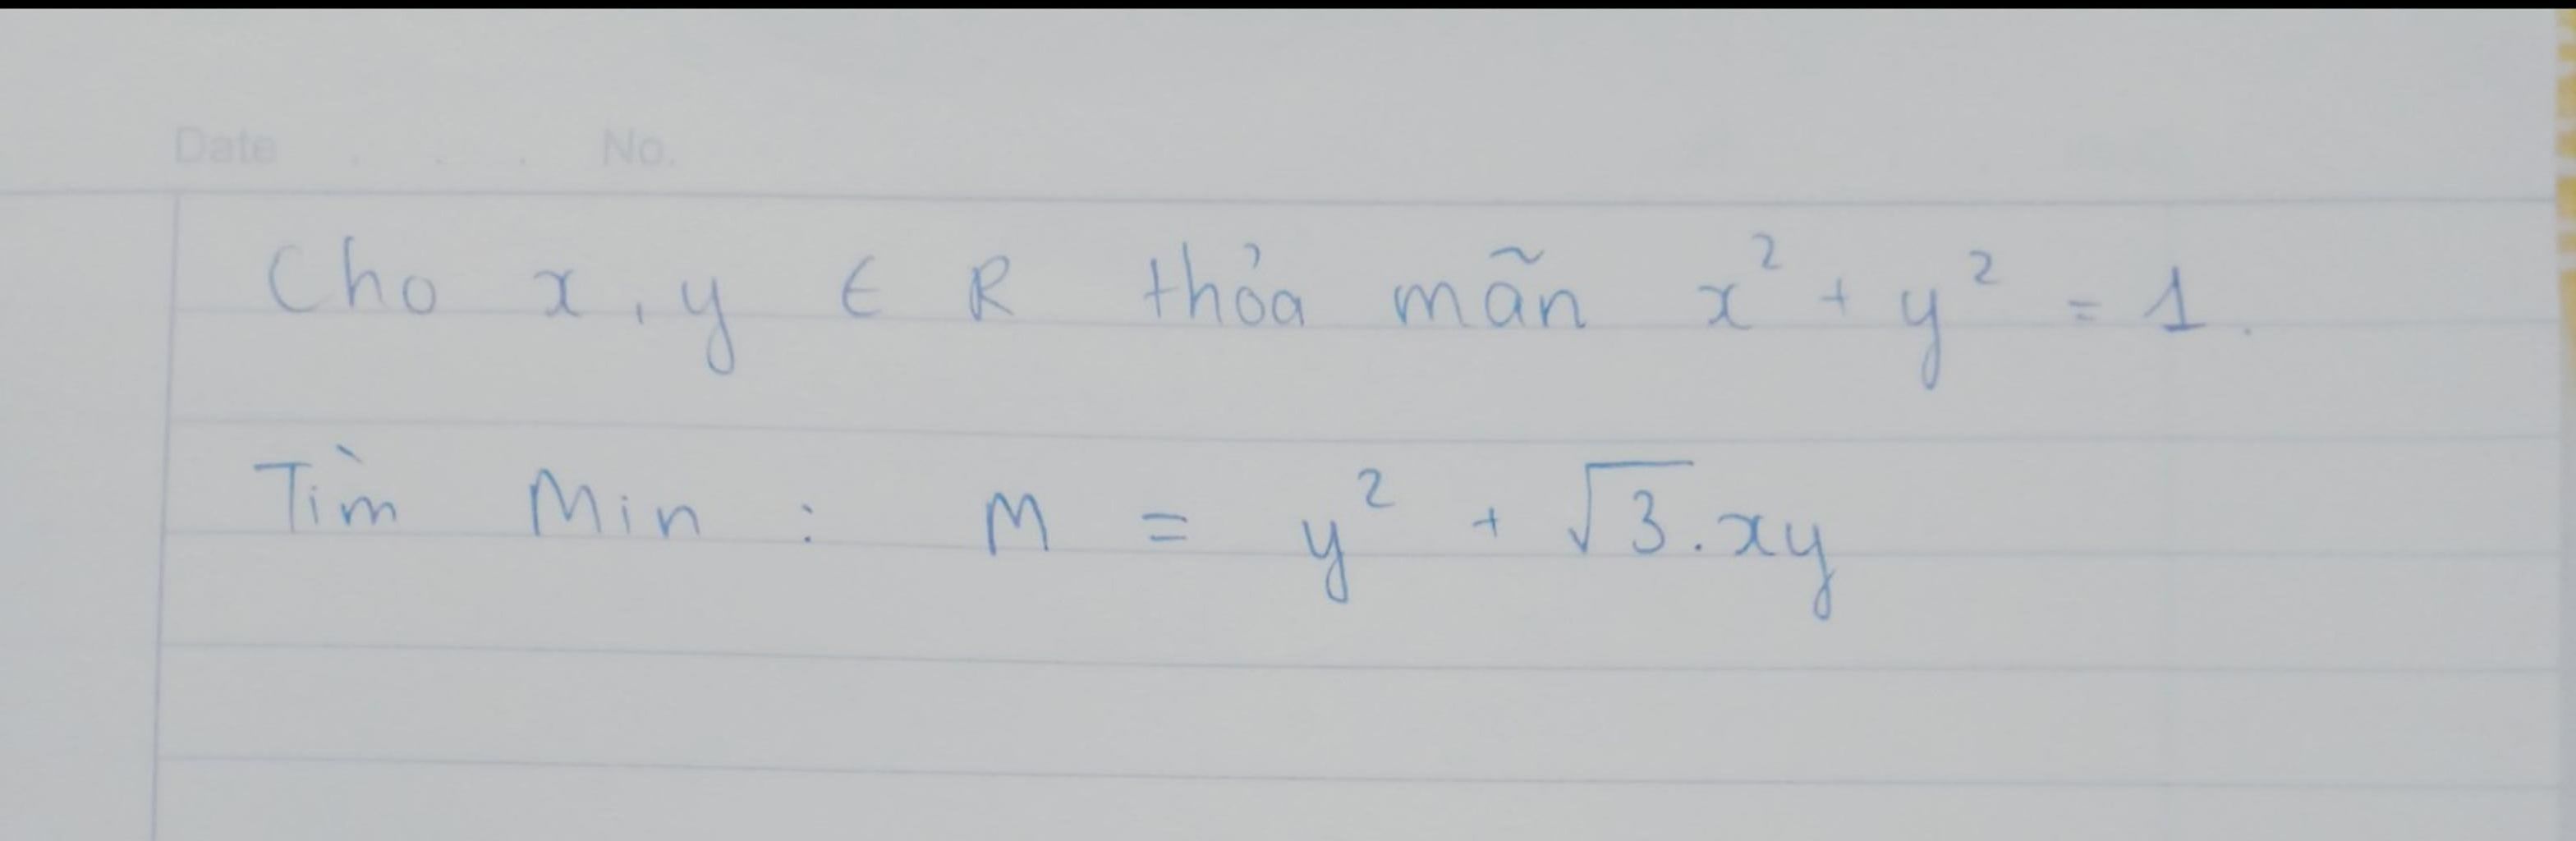 Date . . . No.
Cho x, y ∈ R thỏa mãn x² + y² = 1.
Tìm Min : M = y² + √3.xy